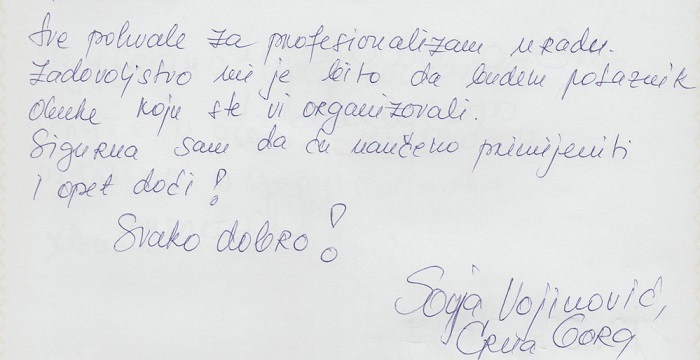 Sve pohvale za profesionalizam u radu.
Zadovoljstvo mi je bilo da budem polaznik
obuke koju ste vi organizovali.
Sigurna sam da ću naučeno primijeniti
i opet doći!
Svako dobro!
Sonja Vojinović,
Crna Gora